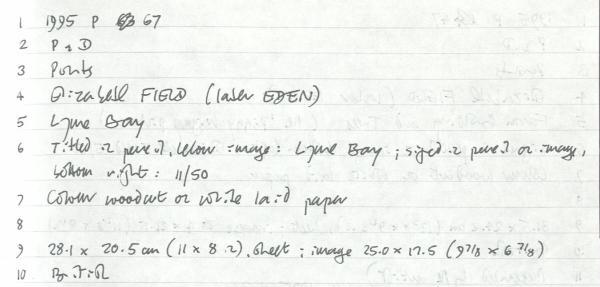 1 1995 P 67
2 P & D
3 Prints
4 Elizabeth FIELD (later EDEN)
5 Lyme Bay
6 Titled in pencil, below image: Lyme Bay; signed in pencil on image,
bottom right: 11/50
7 Colour woodcut on white laid paper
8
9 28.1 x 20.5 cm (11 x 8 in), sheet; image 25.0 x 17.5 (9 7/8 x 6 7/8)
10